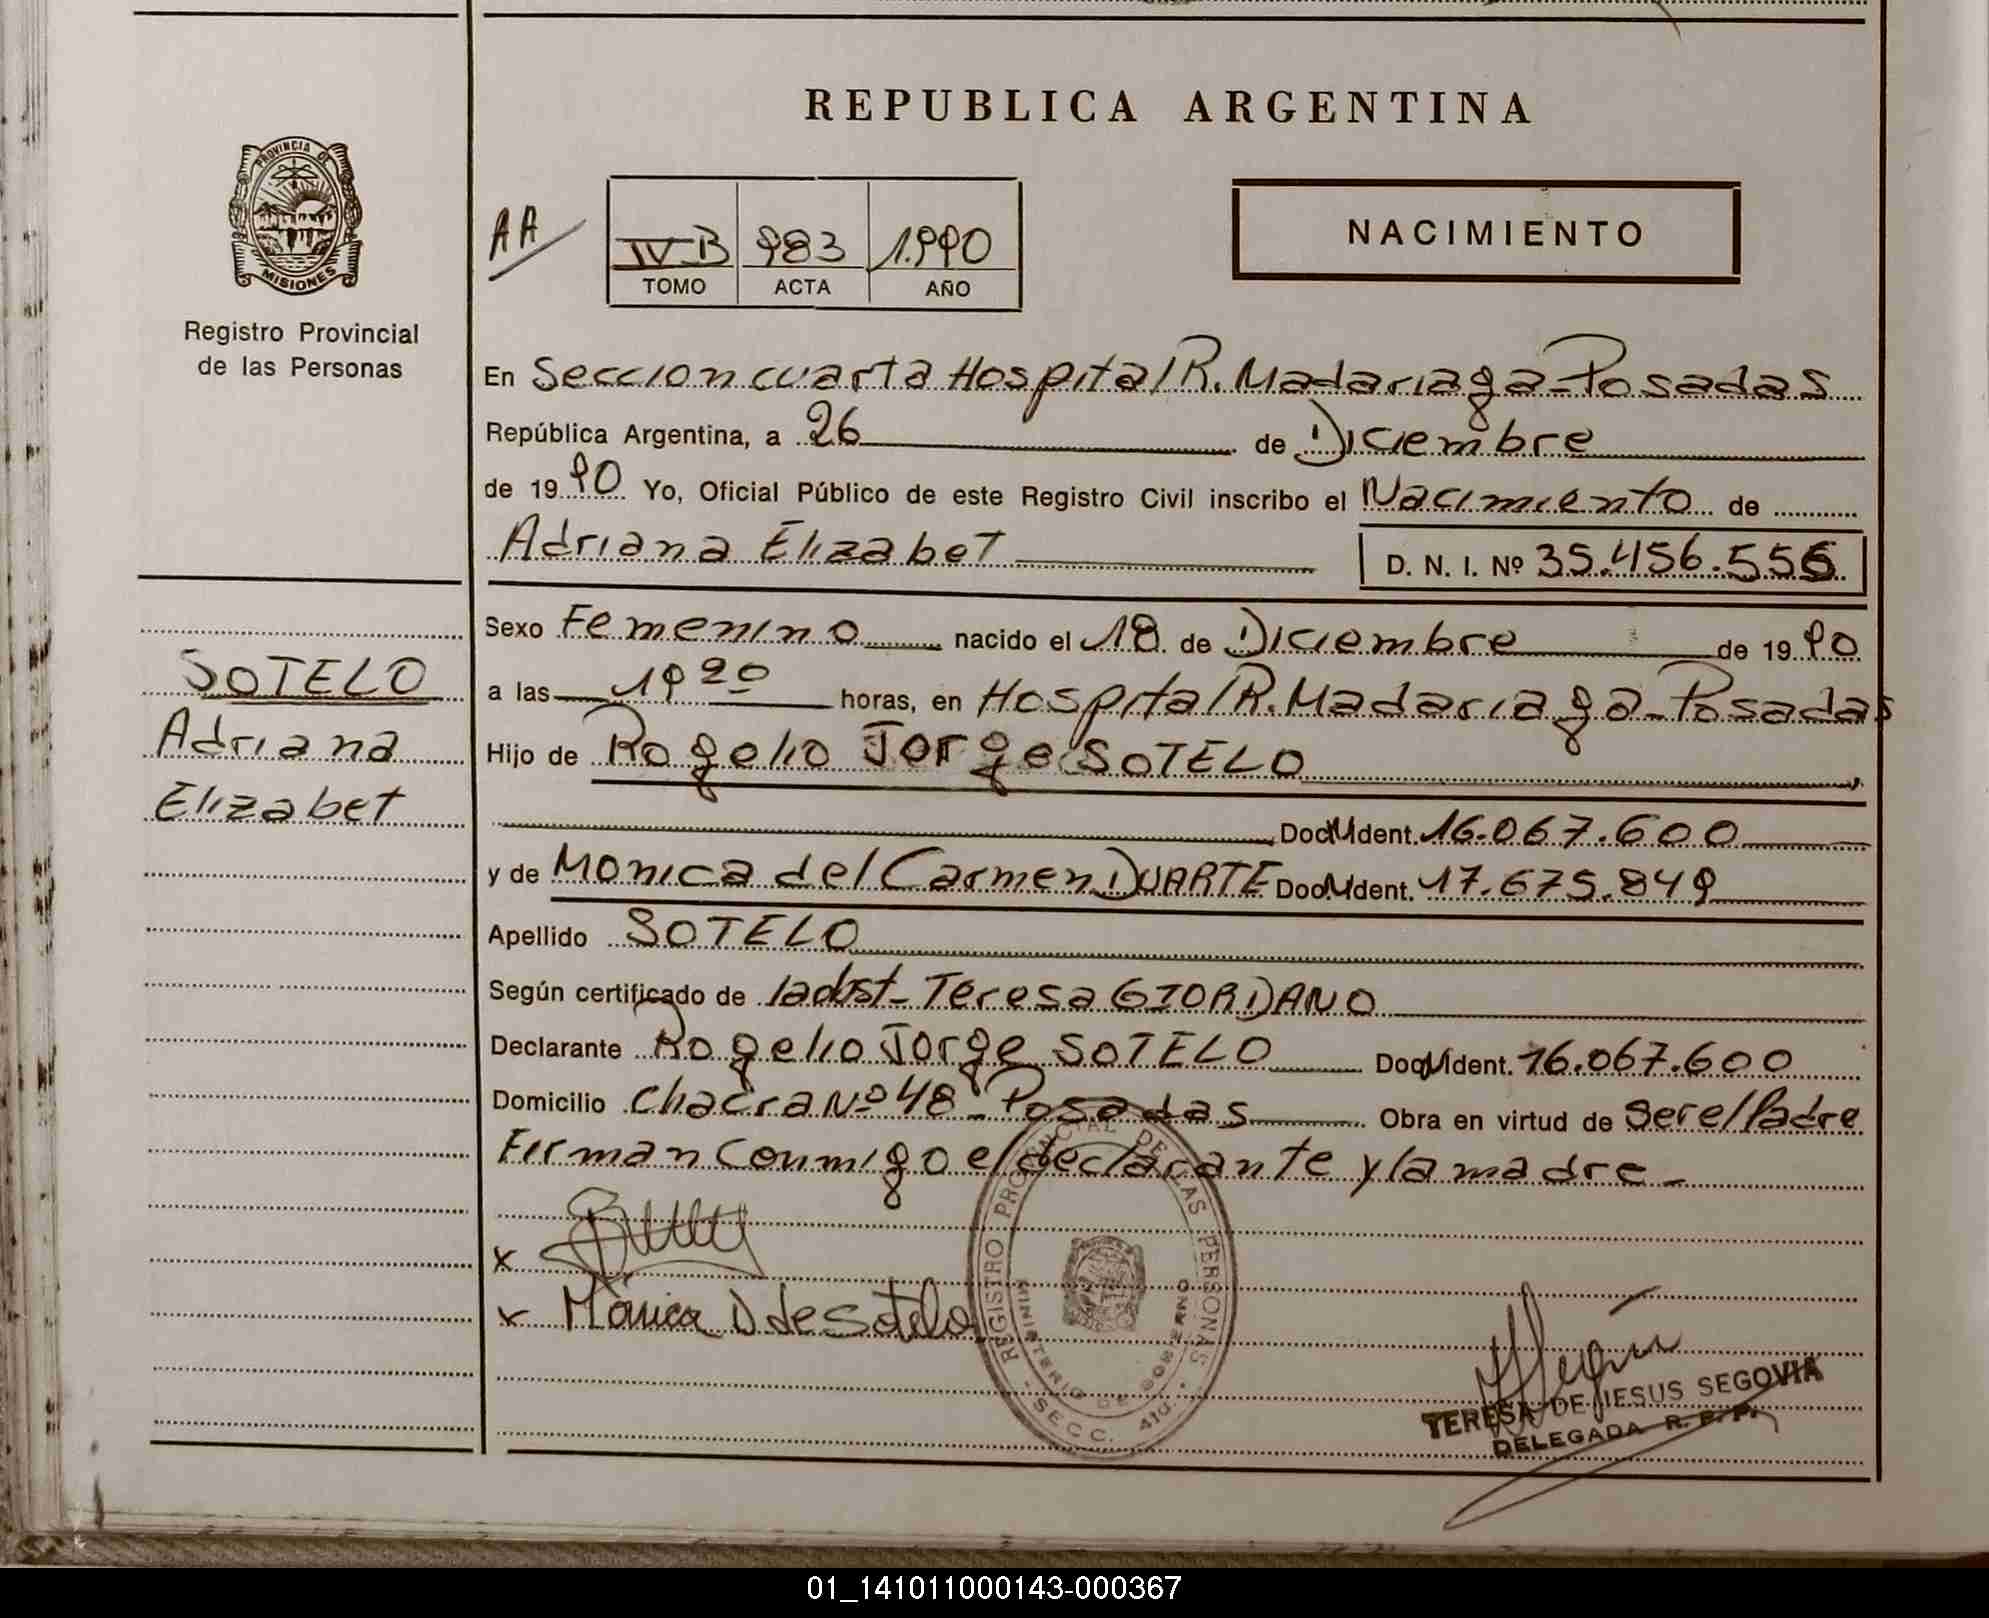 REPUBLICA ARGENTINA
PROVINCIA DE
MISIONES
Registro Provincial
de las Personas
AA
IV B 983 1.990
TOMO ACTA AÑO
NACIMIENTO
En Seccion cuarta Hospital R. Madariaga - Posadas
República Argentina, a 26 de Diciembre
de 1990 Yo, Oficial Público de este Registro Civil inscribo el Nacimiento de
Adriana Elizabet D. N. I. Nº 35.456.556
Sexo Femenino nacido el 18 de Diciembre de 1990
a las 19 20 horas, en Hospital R. Madariaga - Posadas
Hijo de Rogelio Jorge SOTELO
Doc. Ident. 16.067.600
y de Monica del Carmen DUARTE Doc. Ident. 17.675.849
Apellido SOTELO
Según certificado de la obst - Teresa GIORDANO
Declarante Rogelio Jorge SOTELO Doc. Ident. 16.067.600
Domicilio Chacra Nº 48 - Posadas Obra en virtud de ser el Padre
Firman conmigo el declarante y la madre -
x
x Mónica D de Sotelo
SOTELO
Adriana
Elizabet
REGISTRO PROVINCIAL DE LAS PERSONAS
MINISTERIO DE GOBIERNO
- SECC. 4ta. -
TERESA DE JESUS SEGOVIA
DELEGADA R. P. P.
01_141011000143-000367